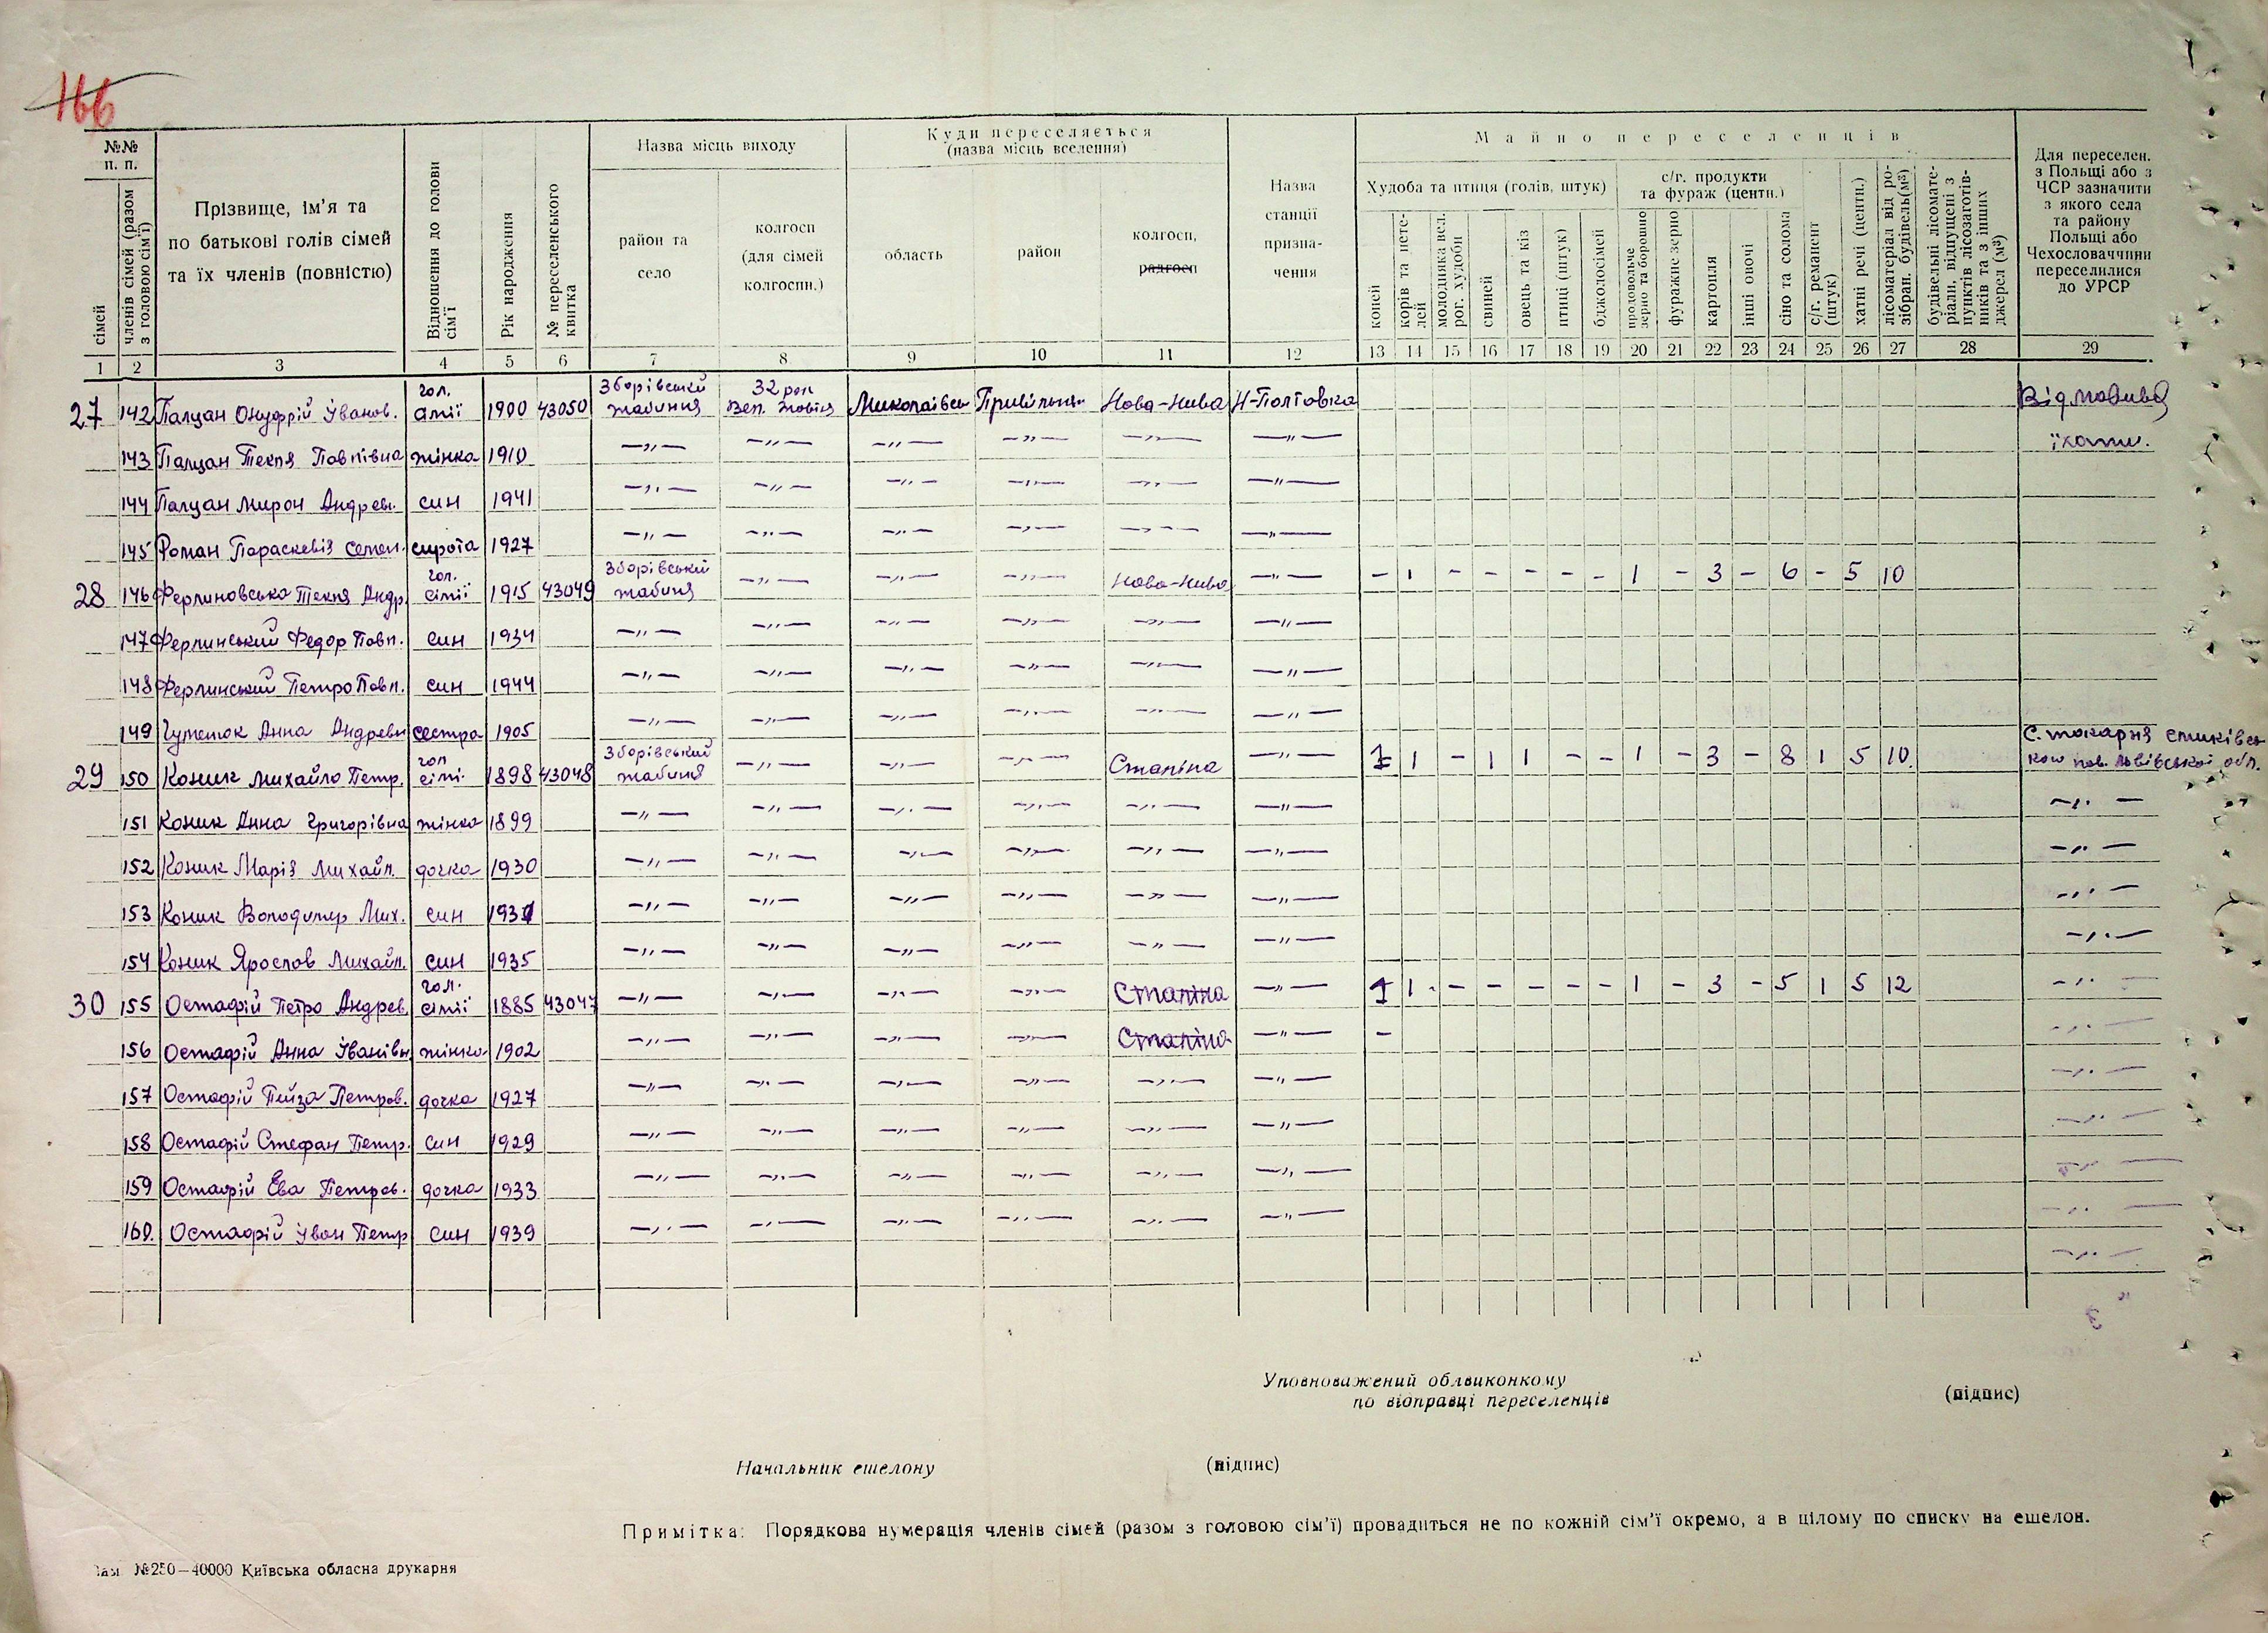 166
№№ п. п.
сімей
членів сімей (разом з головою сім'ї)
Прізвище, ім'я та по батькові голів сімей та їх членів (повністю)
Відношення до голови сім'ї
Рік народження
№ переселенського квитка
Назва місць виходу
район та село
колгосп (для сімей колгоспн.)
Куди переселяється (назва місць вселення)
область
район
колгосп, радгосп
Назва станції призначення
Майно переселенців
Худоба та птиця (голів, штук)
коней
корів та нетелей
молодняка вел. рог. худоби
свиней
овець та кіз
птиці (штук)
бджолосімей
с/г. продукти та фураж (центн.)
продовольче зерно та борошно
фуражне зерно
картопля
інші овочі
сіно та солома
с/г. реманент (штук)
хатні речі (центн.)
лісоматеріал від розібран. будівель (м³)
будівельні лісоматеріали, відпущені з пунктів лісозаготівників та з інших джерел (м³)
Для переселен. з Польщі або з ЧСР зазначити з якого села та району Польщі або Чехословаччини переселилися до УРСР
1 2 3 4 5 6 7 8 9 10 11 12 13 14 15 16 17 18 19 20 21 22 23 24 25 26 27 28 29
27 142 Палцан Онуфрій Іванов. гол. сімії 1900 43050 Зборівський Жабиня Миколаївсь Привільнян Нова-Нива Н-Полтавка Відмовився
143 Палцан Текля Павлівна жінка 1910 —„— —„— —„— —„— —„— —„— їхати.
144 Палцан Мирон Андреев. син 1941 —„— —„— —„— —„— —„— —„—
145 Роман Параскевія Семен. сирота 1927 —„— —„— —„— —„— —„— —„—
28 146 Ферлиновська Текля Андр. гол. сімії 1915 43049 Зборівський Жабиня —„— —„— —„— Нова-Нива —„— - 1 - - - - - 1 - 3 - 6 - 5 10
147 Ферлинський Федор Павл. син 1934 —„— —„— —„— —„— —„— —„—
148 Ферлинський Петро Павл. син 1944 —„— —„— —„— —„— —„— —„—
149 Анна Андреевн сестра 1905 —„— —„— —„— —„— —„— —„—
29 150 Коник Михайло Петр. гол сімі. 1898 43048 Зборівський Жабиня —„— —„— —„— Сталіна —„— 1 1 - 1 1 - - 1 - 3 - 8 1 5 10. пов. Львівської обл.
151 Коник Анна Григорівна жінка 1899 —„— —„— —„— —„— —„— —„— —„—
152 Коник Марія Михайл. дочка 1930 —„— —„— —„— —„— —„— —„— —„—
153 Коник Володимир Мих. син 1931 —„— —„— —„— —„— —„— —„— —„—
154 Коник Ярослав Михайл. син 1935 —„— —„— —„— —„— —„— —„— —„—
30 155 Остафій Петро Андрев. гол. сімії 1885 43047 —„— —„— —„— —„— Сталіна —„— 1 1 - - - - - 1 - 3 - 5 1 5 12 —„—
156 Остафій Анна Іванівн жінка 1902 —„— —„— —„— —„— Сталіна —„— - —„—
157 Остафій Петров. дочка 1927 —„— —„— —„— —„— —„— —„— —„—
158 Остафій Стефан Петр. син 1929 —„— —„— —„— —„— —„— —„— —„—
159 Остафій Ева Петров. дочка 1933 —„— —„— —„— —„— —„— —„— —„—
160. Остафій Іван Петр син 1939 —„— —„— —„— —„— —„— —„— —„—
—„—
Уповноважений облвиконкому
по відправці переселенців (підпис)
Начальник ешелону (підпис)
Примітка: Порядкова нумерація членів сімей (разом з головою сім'ї) провадиться не по кожній сім'ї окремо, а в цілому по списку на ешелон.
Зам. №250—40000 Київська обласна друкарня